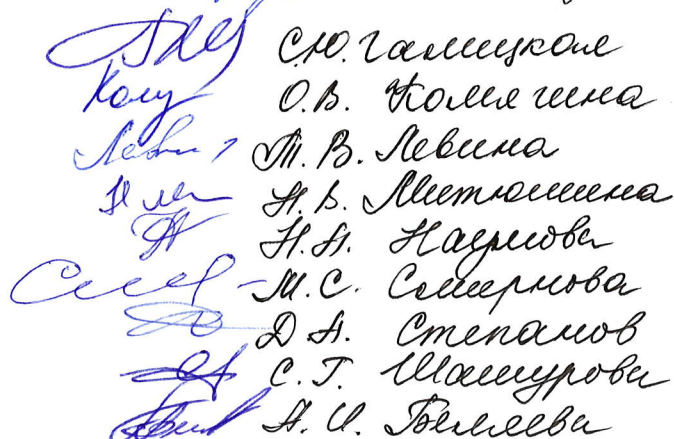 С.Ю. Галицкая
О.В. Комягина
Т.В. Левина
Н.В. Митюшина
Н.А. Наумова
М.С. Смирнова
Д А. Степанов
С.Г. Шашурова
А.И. Беляева